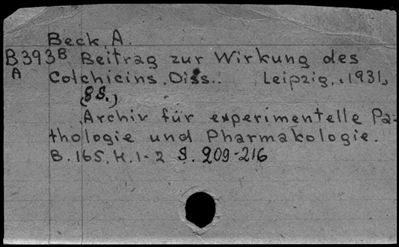 Beck A.
B393B Beitrag zur Wirkung des
A Colchicins. Diss. Leipzig, 1931,
(8 S.)
Archiv für experimentelle Pa-
thologie und Pharmakologie.
B. 165. H. 1-2 S. 209-216